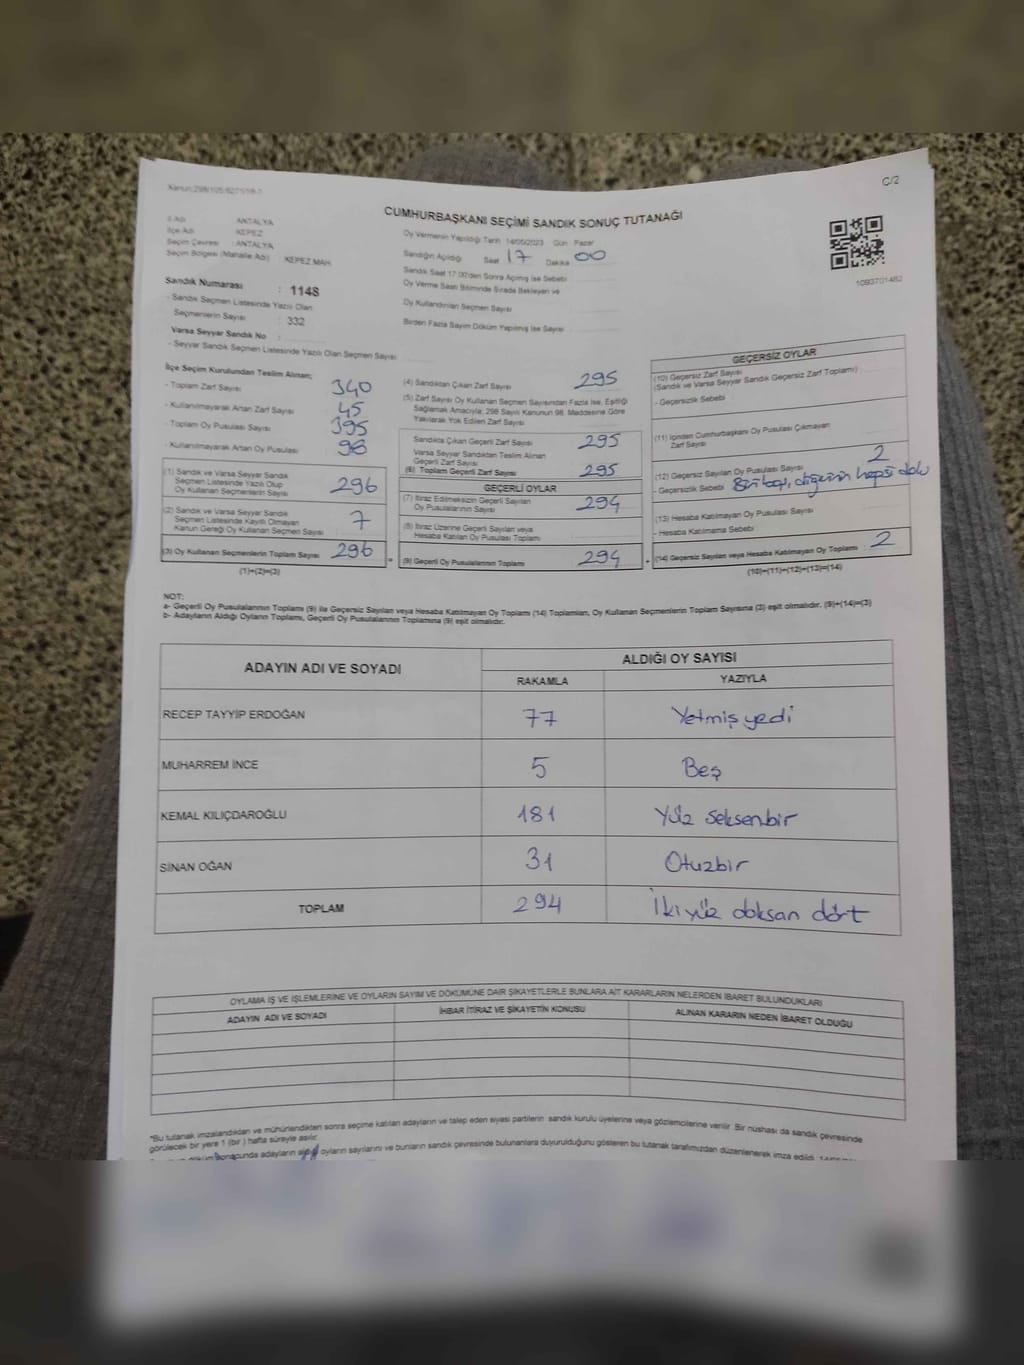 Kanun:298/105:6271/18-1
C/2
CUMHURBAŞKANI SEÇİMİ SANDIK SONUÇ TUTANAĞI
İl Adı ANTALYA
İlçe Adı KEPEZ
Seçim Çevresi : ANTALYA
Seçim Bölgesi (Mahalle Adı) KEPEZ MAH.
Oy Vermenin Yapıldığı Tarih 14/05/2023 Gün : Pazar
Sandığın Açıldığı Saat 17 Dakika 00
Sandık Saat 17:00'den Sonra Açılmış İse Sebebi
Oy Verme Saati Bitiminde Sırada Bekleyen ve
Oy Kullandırılan Seçmen Sayısı
Birden Fazla Sayım Döküm Yapılmış İse Sayısı
1093701482
Sandık Numarası : 1148
- Sandık Seçmen Listesinde Yazılı Olan
Seçmenlerin Sayısı : 332
Varsa Seyyar Sandık No :
- Seyyar Sandık Seçmen Listesinde Yazılı Olan Seçmen Sayısı
İlçe Seçim Kurulundan Teslim Alınan;
- Toplam Zarf Sayısı 340
- Kullanılmayarak Artan Zarf Sayısı 45
- Toplam Oy Pusulası Sayısı 395
- Kullanılmayarak Artan Oy Pusulası 98
(1) Sandık ve Varsa Seyyar Sandık
Seçmen Listesinde Yazılı Olup
Oy Kullanan Seçmenlerin Sayısı 296
(2) Sandık ve Varsa Seyyar Sandık
Seçmen Listesinde Kayıtlı Olmayan
Kanun Gereği Oy Kullanan Seçmen Sayısı 7
(3) Oy Kullanan Seçmenlerin Toplam Sayısı 296
(1)+(2)=(3)
(4) Sandıktan Çıkan Zarf Sayısı 295
(5) Zarf Sayısı Oy Kullanan Seçmen Sayısından Fazla İse, Eşitliği
Sağlamak Amacıyla, 298 Sayılı Kanunun 98. Maddesine Göre
Yakılarak Yok Edilen Zarf Sayısı
Sandıkta Çıkan Geçerli Zarf Sayısı 295
Varsa Seyyar Sandıktan Teslim Alınan
Geçerli Zarf Sayısı
(6) Toplam Geçerli Zarf Sayısı 295
GEÇERLİ OYLAR
(7) İtiraz Edilmeksizin Geçerli Sayılan
Oy Pusulalarının Sayısı 294
(8) İtiraz Üzerine Geçerli Sayılan veya
Hesaba Katılan Oy Pusulası Toplamı
(9) Geçerli Oy Pusulalarının Toplamı 294
GEÇERSİZ OYLAR
(10) Geçersiz Zarf Sayısı
(Sandık ve Varsa Seyyar Sandık Geçersiz Zarf Toplamı)
- Geçersizlik Sebebi
(11) İçinden Cumhurbaşkanı Oy Pusulası Çıkmayan
Zarf Sayısı
(12) Geçersiz Sayılan Oy Pusulası Sayısı 2
- Geçersizlik Sebebi Biri boş, diğerinin hepsi dolu
(13) Hesaba Katılmayan Oy Pusulası Sayısı
- Hesaba Katılmama Sebebi
(14) Geçersiz Sayılan veya Hesaba Katılmayan Oy Toplamı 2
(10)+(11)+(12)+(13)=(14)
NOT:
a- Geçerli Oy Pusulalarının Toplamı (9) ile Geçersiz Sayılan veya Hesaba Katılmayan Oy Toplamı (14) Toplamları, Oy Kullanan Seçmenlerin Toplam Sayısına (3) eşit olmalıdır. (9)+(14)=(3)
b- Adayların Aldığı Oyların Toplamı, Geçerli Oy Pusulalarının Toplamına (9) eşit olmalıdır.
ADAYIN ADI VE SOYADI ALDIĞI OY SAYISI
RAKAMLA YAZIYLA
RECEP TAYYİP ERDOĞAN 77 Yetmiş yedi
MUHARREM İNCE 5 Beş
KEMAL KILIÇDAROĞLU 181 Yüz seksenbir
SİNAN OĞAN 31 Otuzbir
TOPLAM 294 İki yüz doksan dört
OYLAMA İŞ VE İŞLEMLERİNE VE OYLARIN SAYIM VE DÖKÜMÜNE DAİR ŞİKAYETLERLE BUNLARA AİT KARARLARIN NELERDEN İBARET BULUNDUKLARI
ADAYIN ADI VE SOYADI İHBAR İTİRAZ VE ŞİKAYETİN KONUSU ALINAN KARARIN NEDEN İBARET OLDUĞU
*Bu tutanak imzalandıktan ve mühürlendikten sonra seçime katılan adayların ve talep eden siyasi partilerin sandık kurulu üyelerine veya gözlemcilerine verilir. Bir nüshası da sandık çevresinde
görülecek bir yere 1 (bir) hafta süreyle asılır.
döküm sonucunda adayların aldığı oyların sayılarını ve bunların sandık çevresinde bulunanlara duyurulduğunu gösteren bu tutanak tarafımızdan düzenlenerek imza edildi.